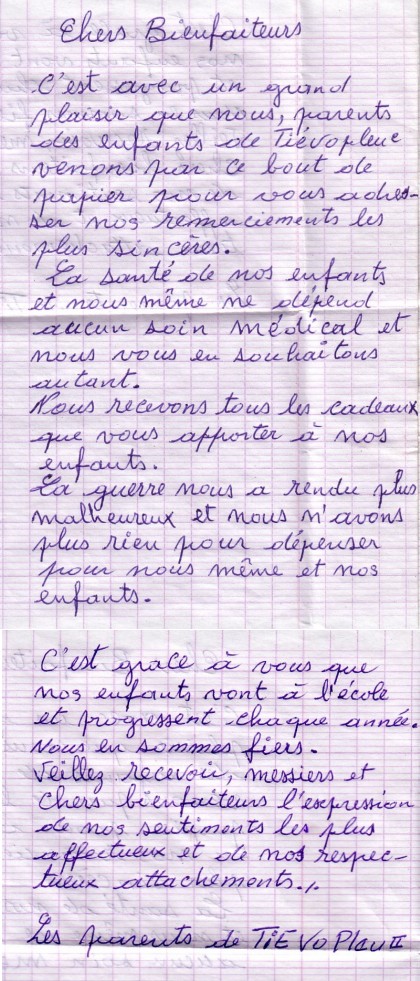 Chers Bienfaiteurs
C'est avec un grand
plaisir que nous, parents
des enfants de Tiévopleu
venons par ce bout de
papier pour vous adres-
ser nos remerciements les
plus sincères.
La santé de nos enfants
et nous même ne dépend
aucun soin médical et
nous vous en souhaitons
autant.
Nous recevons tous les cadeaux
que vous apporter à nos
enfants.
La guerre nous a rendu plus
malheureux et nous n'avons
plus rien pour dépenser
pour nous même et nos
enfants.
C'est grace à vous que
nos enfants vont à l'école
et progressent chaque année.
Nous en sommes fiers.
Veillez recevoir, messiers et
chers bienfaiteurs l'expression
de nos sentiments les plus
affectueux et de nos respec-
tueux attachements./.
Les parents de TiEVoPleu II